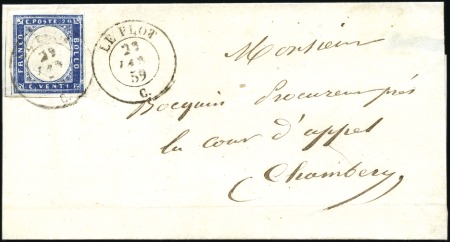 C. POSTE 20
FRANCO
BOLLO
C. VENTI
LE PLOT
22
59
C.
Monsieur
Bocquin Procureur près
la cour d'appel
Chambéry